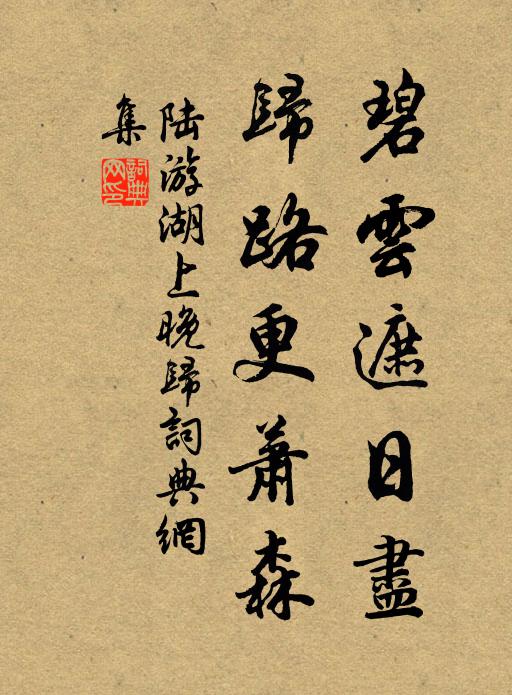 碧雲遮日盡
歸路更蕭森
陸游湖上晚歸詞典網
集
詞典网印